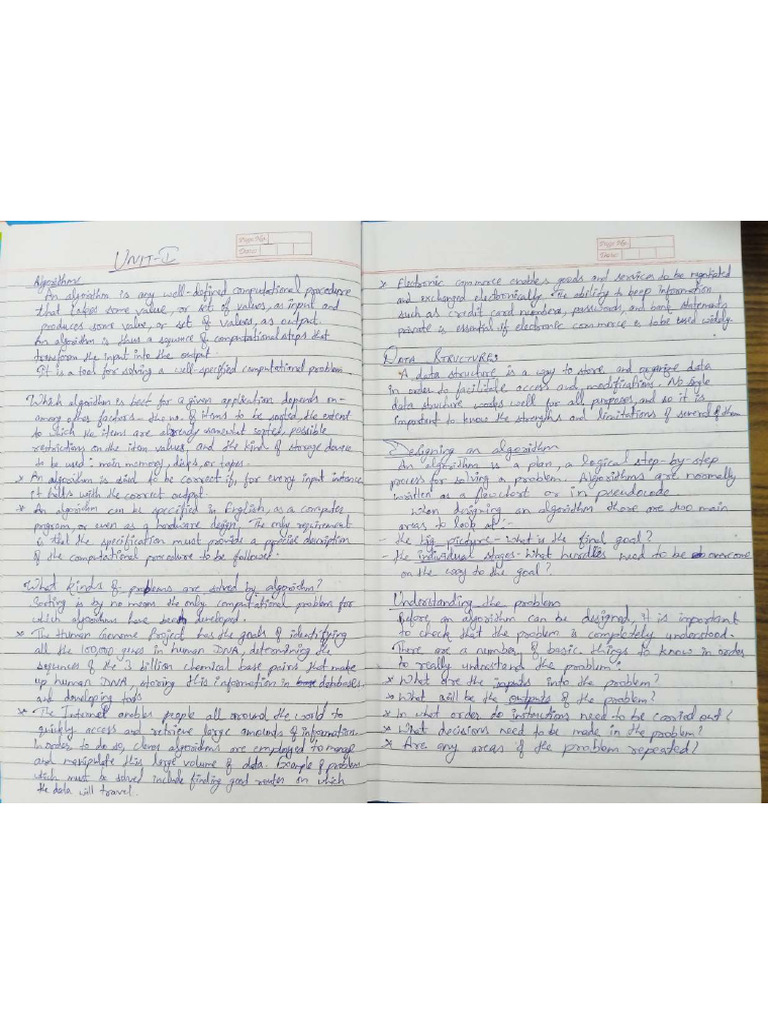 Page No.
Date
UNIT-I
Algorithms
An algorithm is any well-defined computational procedure
that takes some value, or set of values, as input and
produces some value, or set of values, as output.
An algorithm is thus a sequence of computational steps that
transform the input into the output.
It is a tool for solving a well-specified computational problem.
Which algorithm is best for a given application depends on-
among other factors- the no. of items to be sorted, the extent
to which the items are already somewhat sorted, possible
restrictions on the item values, and the kind of storage device
to be used: main memory, disks, or tapes.
* An algorithm is said to be correct if, for every input instance,
it halts with the correct output.
* An algorithm can be specified in English, as a computer
program, or even as a hardware design. The only requirement
is that the specification must provide a precise description
of the computational procedure to be followed.
What kinds of problems are solved by algorithm?
Sorting is by no means the only computational problem for
which algorithms have been developed.
* The Human Genome Project has the goals of identifying
all the 100,000 genes in human DNA, determining the
sequences of the 3 billion chemical base pairs that make
up human DNA, storing this information in databases,
and developing tools
* The Internet enables people all around the world to
quickly access and retrieve large amounts of information.
In order to do so, clever algorithms are employed to manage
and manipulate this large volume of data. Example of problems
which must be solved include finding good routes on which
the data will travel.
Page No.
Date
* Electronic commerce enables goods and services to be negotiated
and exchanged electronically. The ability to keep information
such as credit card numbers, passwords, and bank statements
private is essential if electronic commerce is to be used widely.
DATA STRUCTURES
A data structure is a way to store and organize data
in order to facilitate access and modifications. No single
data structure works well for all purposes, and so it is
important to know the strengths and limitations of several of them
Designing an algorithm
An algorithm is a plan, a logical step-by-step
process for solving a problem. Algorithms are normally
written as a flowchart or in pseudocode.
When designing an algorithm there are two main
areas to look at:-
- the big picture- what is the final goal?
- the individual stages- what hurdles need to be overcome
on the way to the goal?
Understanding the problem
Before an algorithm can be designed, it is important
to check that the problem is completely understood.
There are a number of basic things to know in order
to really understand the problem:
* What are the inputs into the problem?
* What will be the outputs of the problem?
* In what order do instructions need to be carried out?
* What decisions need to be made in the problem?
* Are any areas of the problem repeated?